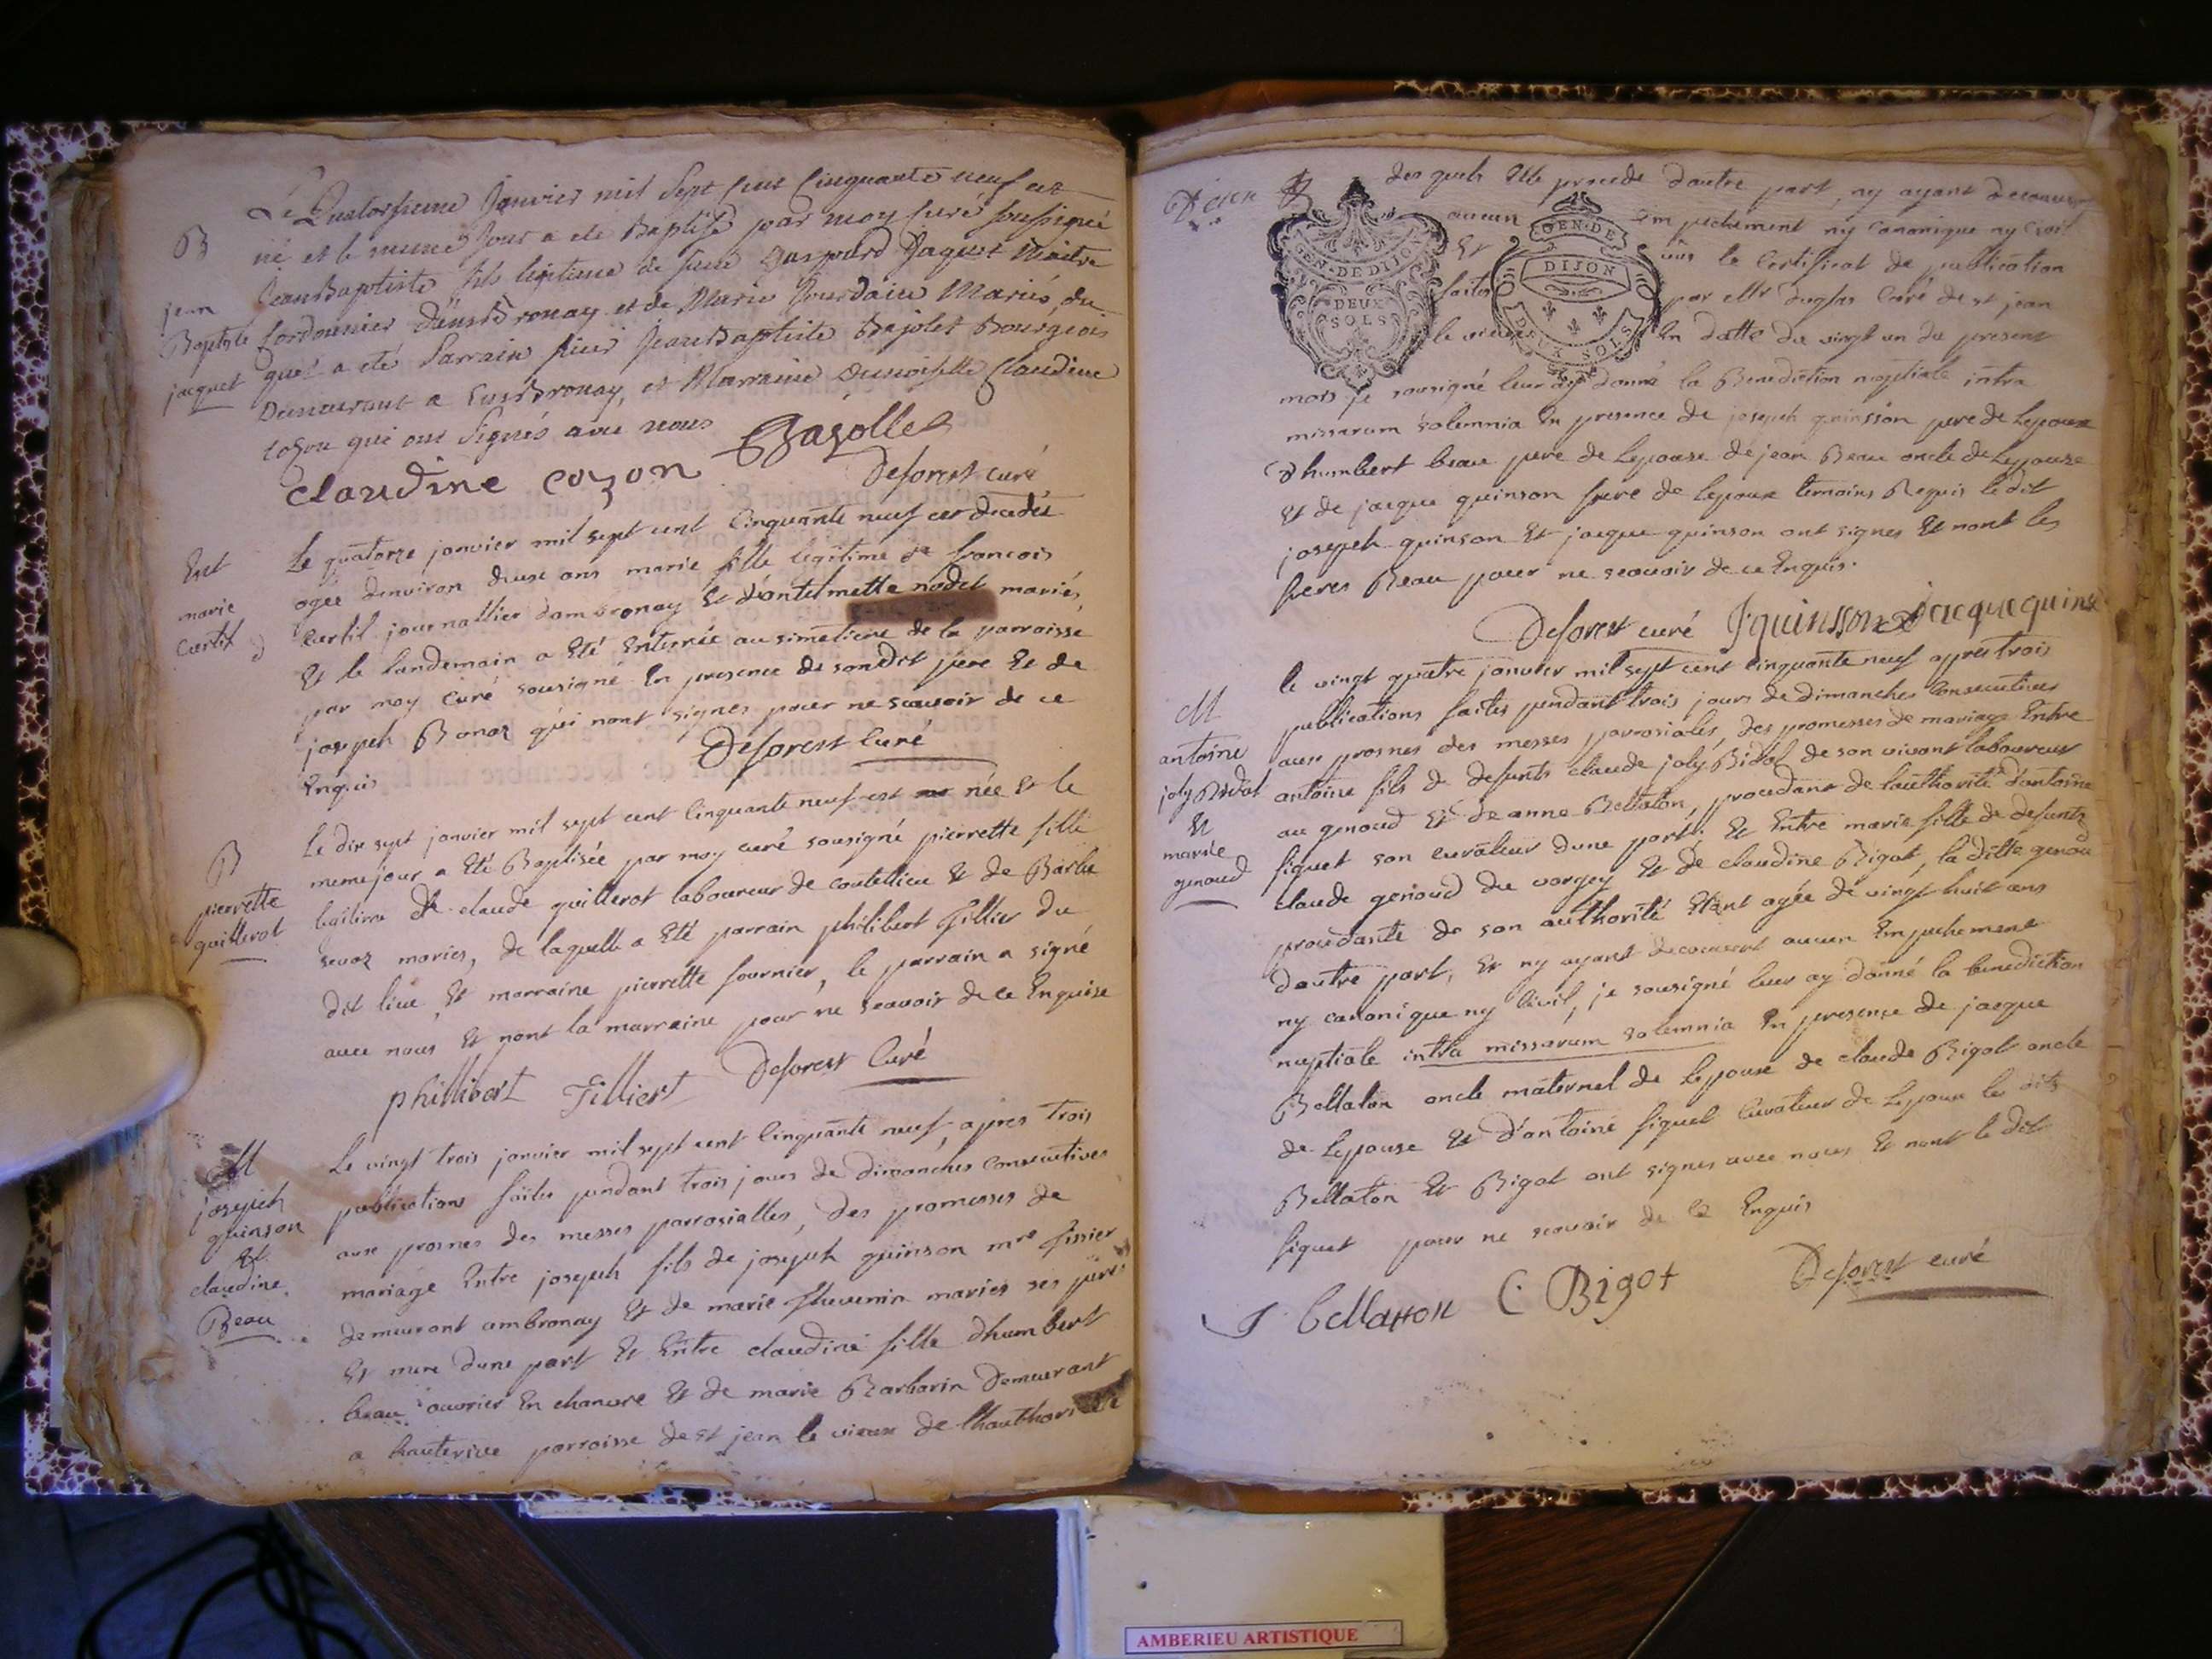 B
jean
Baptiste
jacquet
Le Quatorsieme Janvier mil Sept cent Cinquante neuf est
né et le meme Jour a ete Baptisé par moy curé soussigné
Jean Baptiste fils legitime de sieur Gaspard Jaquet Maitre
Cordonnier d'Ambronay et de Marie Jourdain Mariés, du
quel a eté Parrain sieur Jean Baptiste Bajolet Bourgeois
Demeurant a Ambronay, et Marraine Demoiselle Claudine
cozon qui ont Signés avec nous
Bajollet
claudine cozon
Deforest curé
Ent
marie
Curtil
Le quatorze janvier mil sept cent Cinquante neuf est decedée
agée denviron deux ans marie fille legitime de francois
Curtil journallier dambronay Et d'antelmette nodet mariés,
Et le landemain a Eté Enterrée au simetiere de la parroisse
par moy curé sousigné En presence de son dit pere Et de
joseph Bonaz qui nont signés pour ne scavoir de ce
Enquis
Deforest Curé
B
pierrette
guillerot
Le dix sept janvier mil sept cent Cinquante neuf est née Et le
meme jour a Eté Baptisée par moy curé sousigné pierrette fille
legitime de claude guillerot laboureur de coutellieu Et de Barbe
sevoz maries, de laquelle a Eté parrain philibert fillier du
dit lieu Et marraine pierrette fournier, le parrain a signé
avec nous Et nont la marraine pour ne scavoir de ce Enquise
phillibert Filliert Deforest Curé
M
joseph
quinson
Et
claudine
Beau
Le vingt trois janvier mil sept cent Cinquante neuf, apres trois
publications faites pendant trois jours de dimanches Consecutives
aux prosnes des messes parrosialles, des promesses de
mariage Entre joseph fils de joseph quinson mre tissier
demeurant ambronay Et de marie thevenin maries ses pere
Et mere dune part Et Entre claudine fille dhumbert
beau ouvrier En chanvre Et de marie Barbarin Demeurant
a hauterive parroisse de st jean le vieux de lhauthorité
GEN. DE DIJON
DEUX
SOLS
GEN. DE
DIJON
DEUX SOLS
des quels Elle procede dautre part, ny ayant decouvert
aucun Empechement ny canonique ny Civil
Et vûs le Certificat de publication
faites par Mr duglas Curé de st jean
le vieux En datte du vingt un du present
mois je sousigné leur ay donné la Benediction nuptiale intra
missarum solemnia En presence de joseph quinsson pere de Lepoux
dhumbert beau pere de Lepouse de jean Beau oncle de Lepouse
Et de jacque quinson frere de lepoux temoins Requis le dit
joseph quinson Et jacque quinson ont signes Et nont les
freres Beau pour ne scavoir de ce Enquis.
Deforest curé J quinsson Jacque quinson
M
antoine
joly Bidot
Et
marie
genoud
le vingt quatre janvier mil sept cent Cinquante neuf apres trois
publications faites pendant trois jours de dimanches Consecutives
aux prosnes des messes parrosiales, des promesses de mariage Entre
antoine fils de defunts claude joly Bidot de son vivant laboureur
au genoud Et deanne Bellaton, procedant de lauthorité d'antoine
figuet son curateur dune part; Et Entre marie fille de defunts
claude genoud du vorgey Et de claudine Bigot, la ditte genoud
procedante de son authorité Etant agée de vingt huit ans
dautre part, Et ny ayant decouvert aucun Empechement
ny canonique ny Civil, je sousigné leur ay donné la benediction
nuptiale intra missarum solemnia En presence de jacque
Bellaton oncle maternel de Lepoux de claude Bigot oncle
de Lepouse Et d'antoine figuet Curateur de Lepoux les dits
Bellaton Et Bigot ont signes avec nous Et nont le dit
figuet pour ne scavoir de ce Enquis
J bellatton C Bigot Deforest curé
AMBERIEU ARTISTIQUE